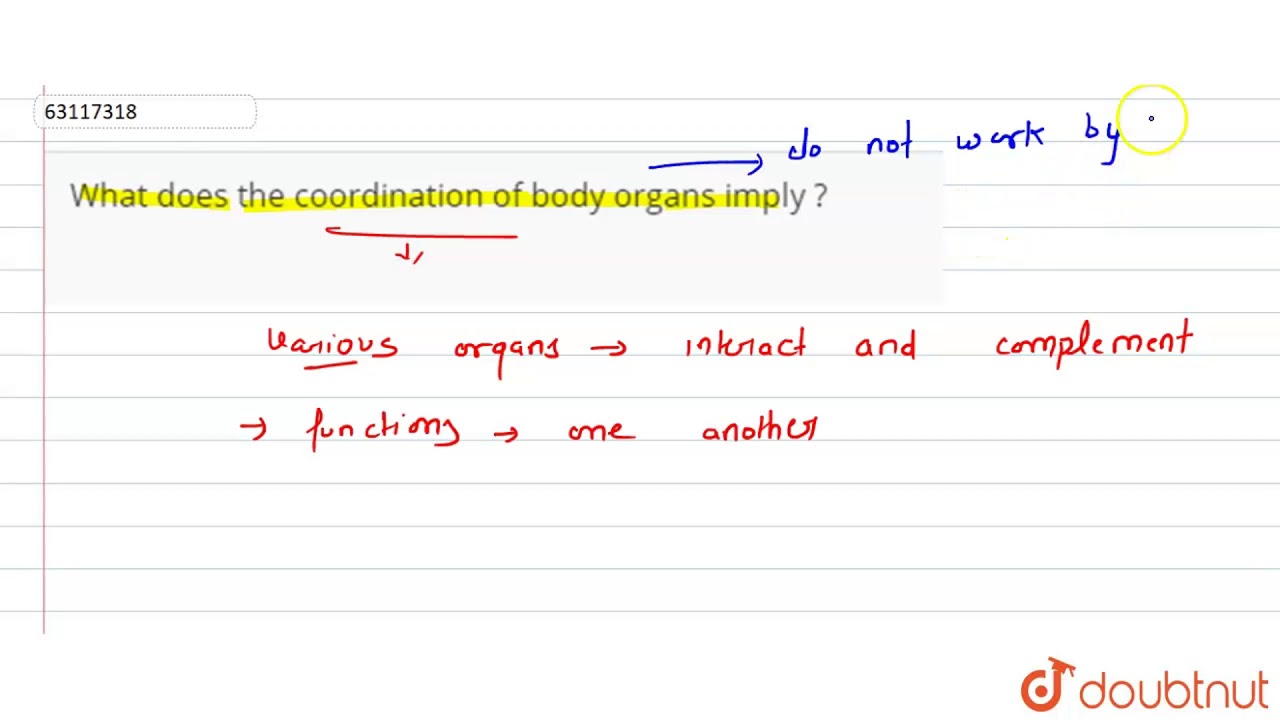 63117318
do not work by
What does the coordination of body organs imply ?
various organs → interact and complement
→ functions → one another
doubtnut